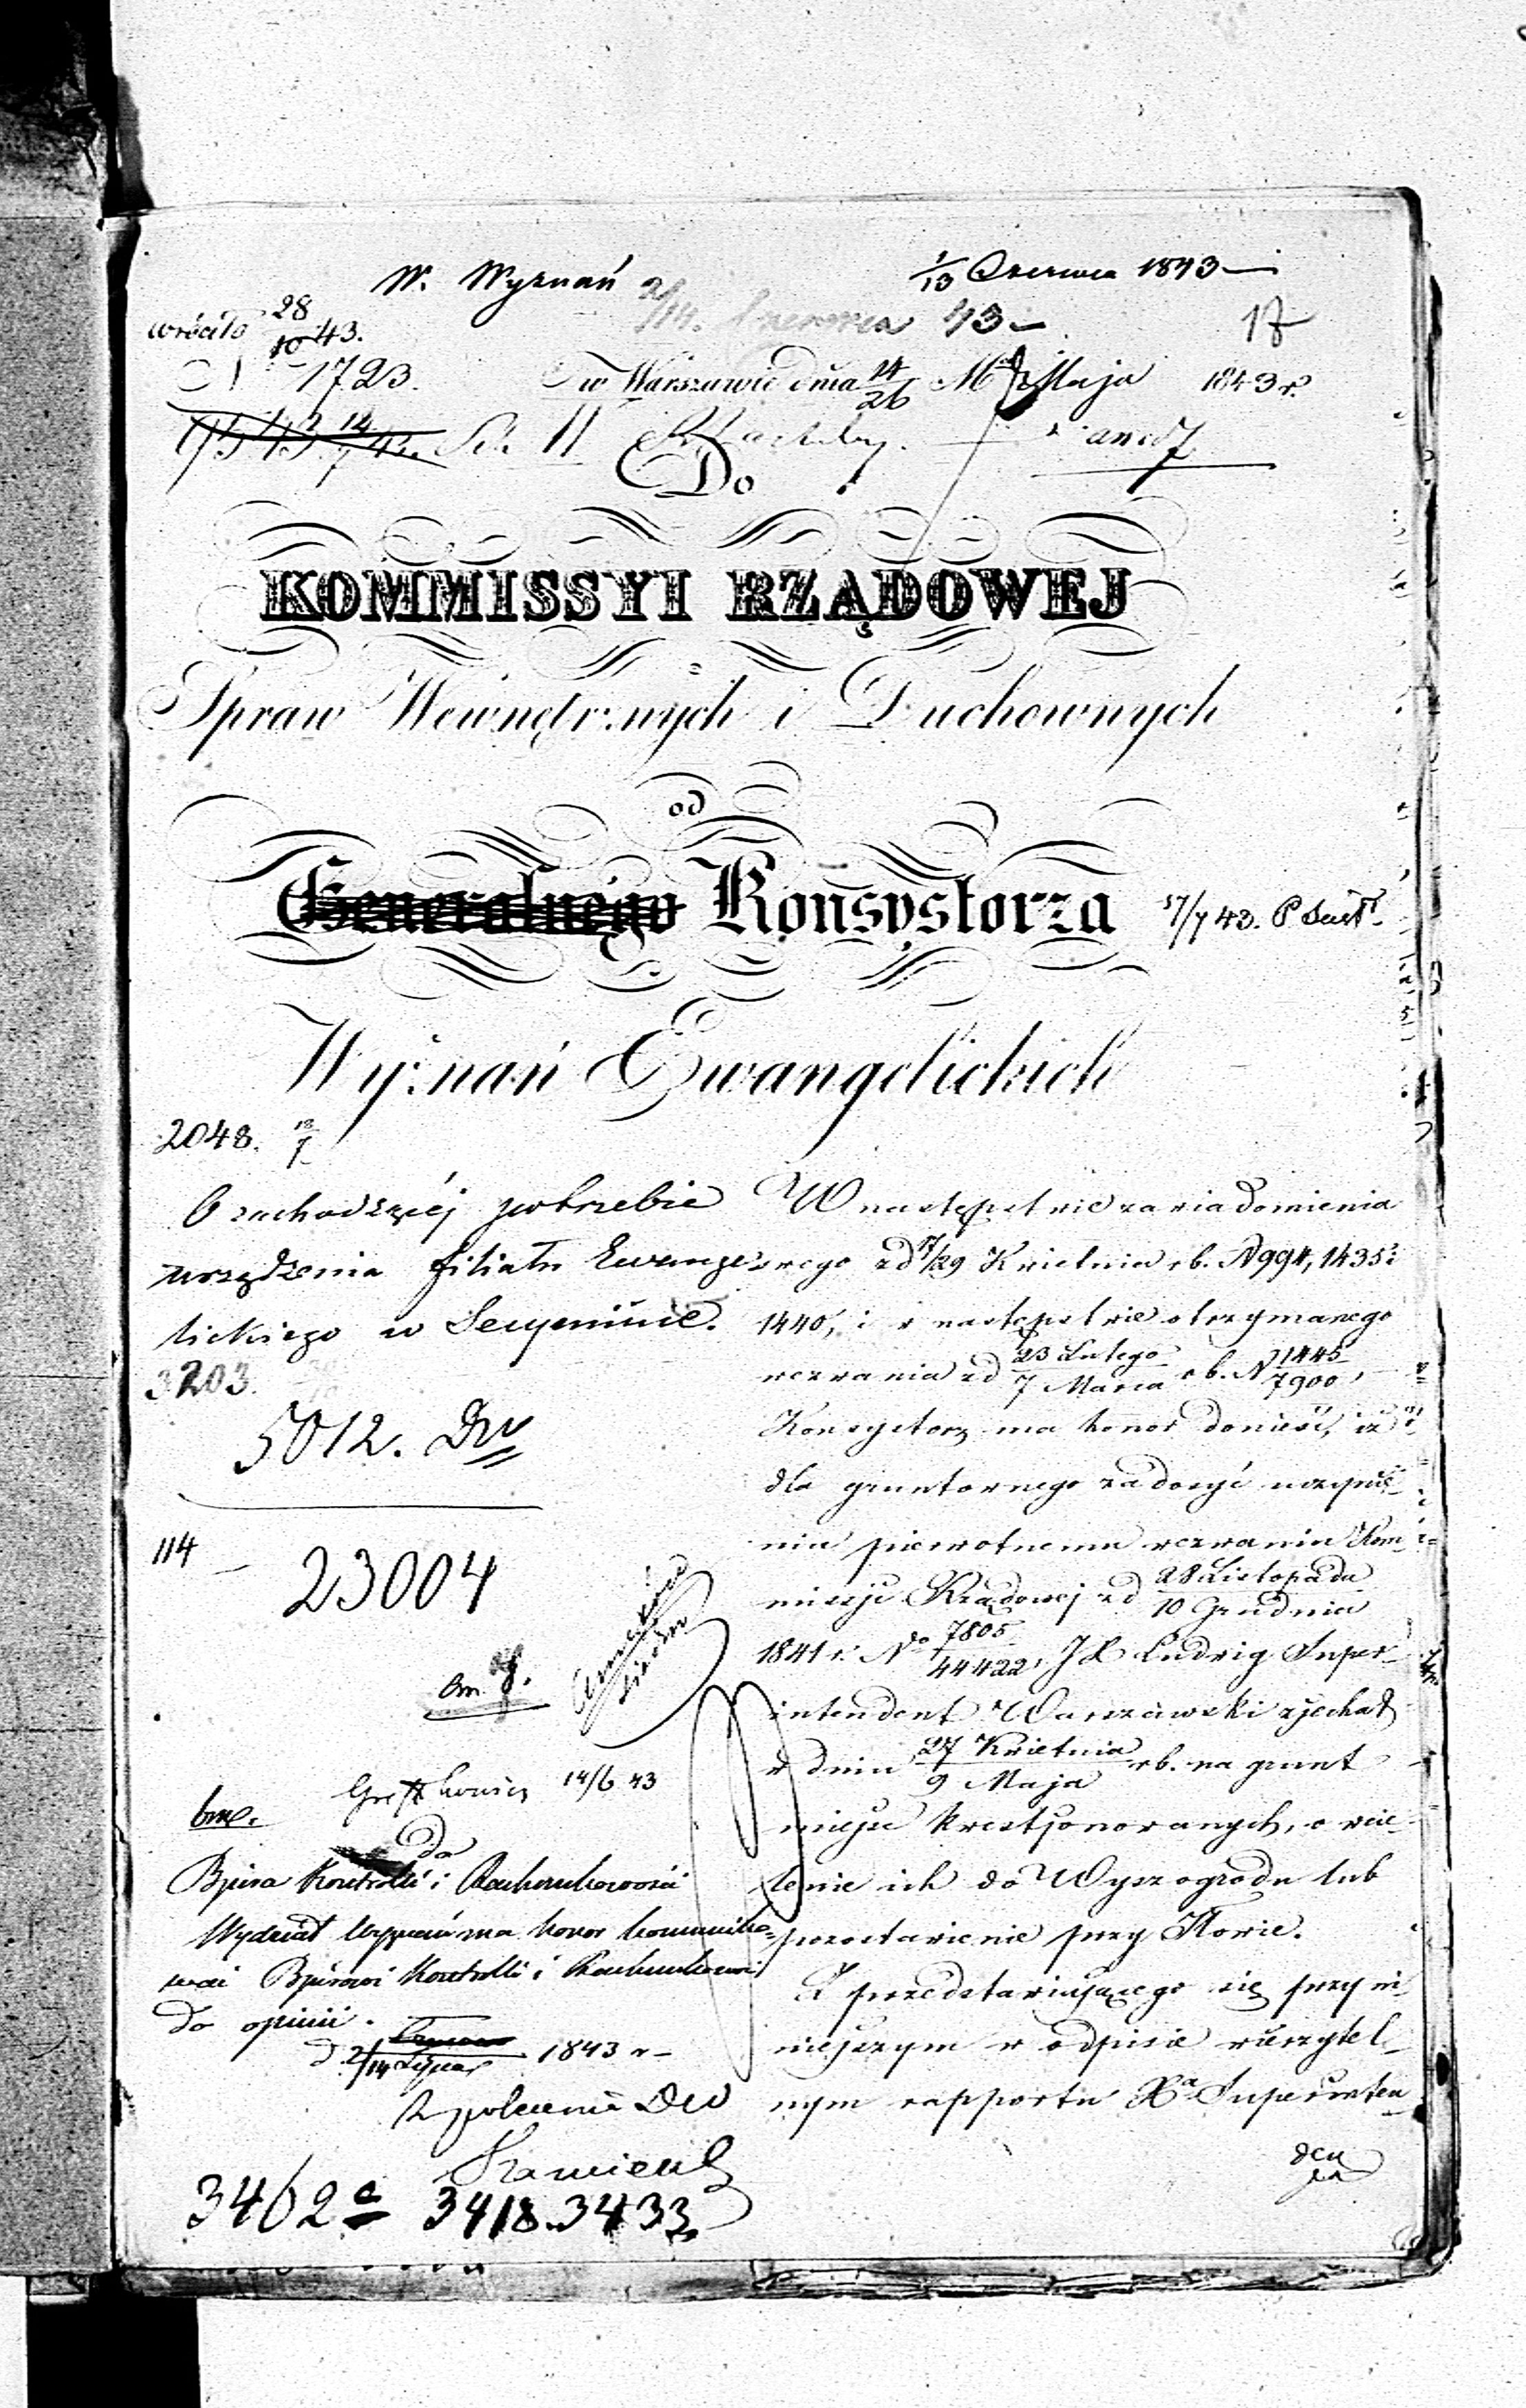 W. Wyznań
1/13 Czerwca 1843
2/14. Czerwca 43
17
wróciło 28/10 43.
N 1723.
w Warszawie dnia 14/26 Maja 1843 r.
Do
KOMMISSYI RZĄDOWEJ
Spraw Wewnętrznych i Duchownych
od
Generalnego Konsystorza
17/7 43.
Wyznań Ewangelickich
2048. 18/7
O zachodzącéj potrzebie
urządzenia filiału Ewange-
lickiego w Secyminie.
3203.
5012. DW
114
23004
14/6 43
do
Bjura Kontrolli i Rachunkowości
Wydział Wyznań ma honor kommuniko-
wać Bjurowi Kontrolli i Rachunkowości
do opinii.
d. 2/14 Lipca 1843 r
Z polecenia DW
3462 3418. 3433
W następstwie zawiadomienia
swego z d 17/29 Kwietnia r b. N 994, 1435 i
1440, i w następstwie otrzymanego
wezwania z d 23 Lutego/7 Marca r b. N 1445/7900,
Konsystorz ma honor donieść, iż
dla gruntownego zadosyć uczynie-
nia pierwotnemu wezwaniu Kom-
missyi Rządowej z d 28 Listopada/10 Grudnia
1841 r. No 7805/44422, JX Ludwig Super-
intendent Warszawski zjechał
w dniu 27 Kwietnia/9 Maja r b. na grunt
miejsc kwestjonowanych, o wcie-
lenie ich do Wyszogrodu lub
pozostawienie przy Iłowie.
Z przedstawiającego się przy ni-
niejszym w odpisie wierzytel-
nym rapportu Xa Superinten-
den
ta